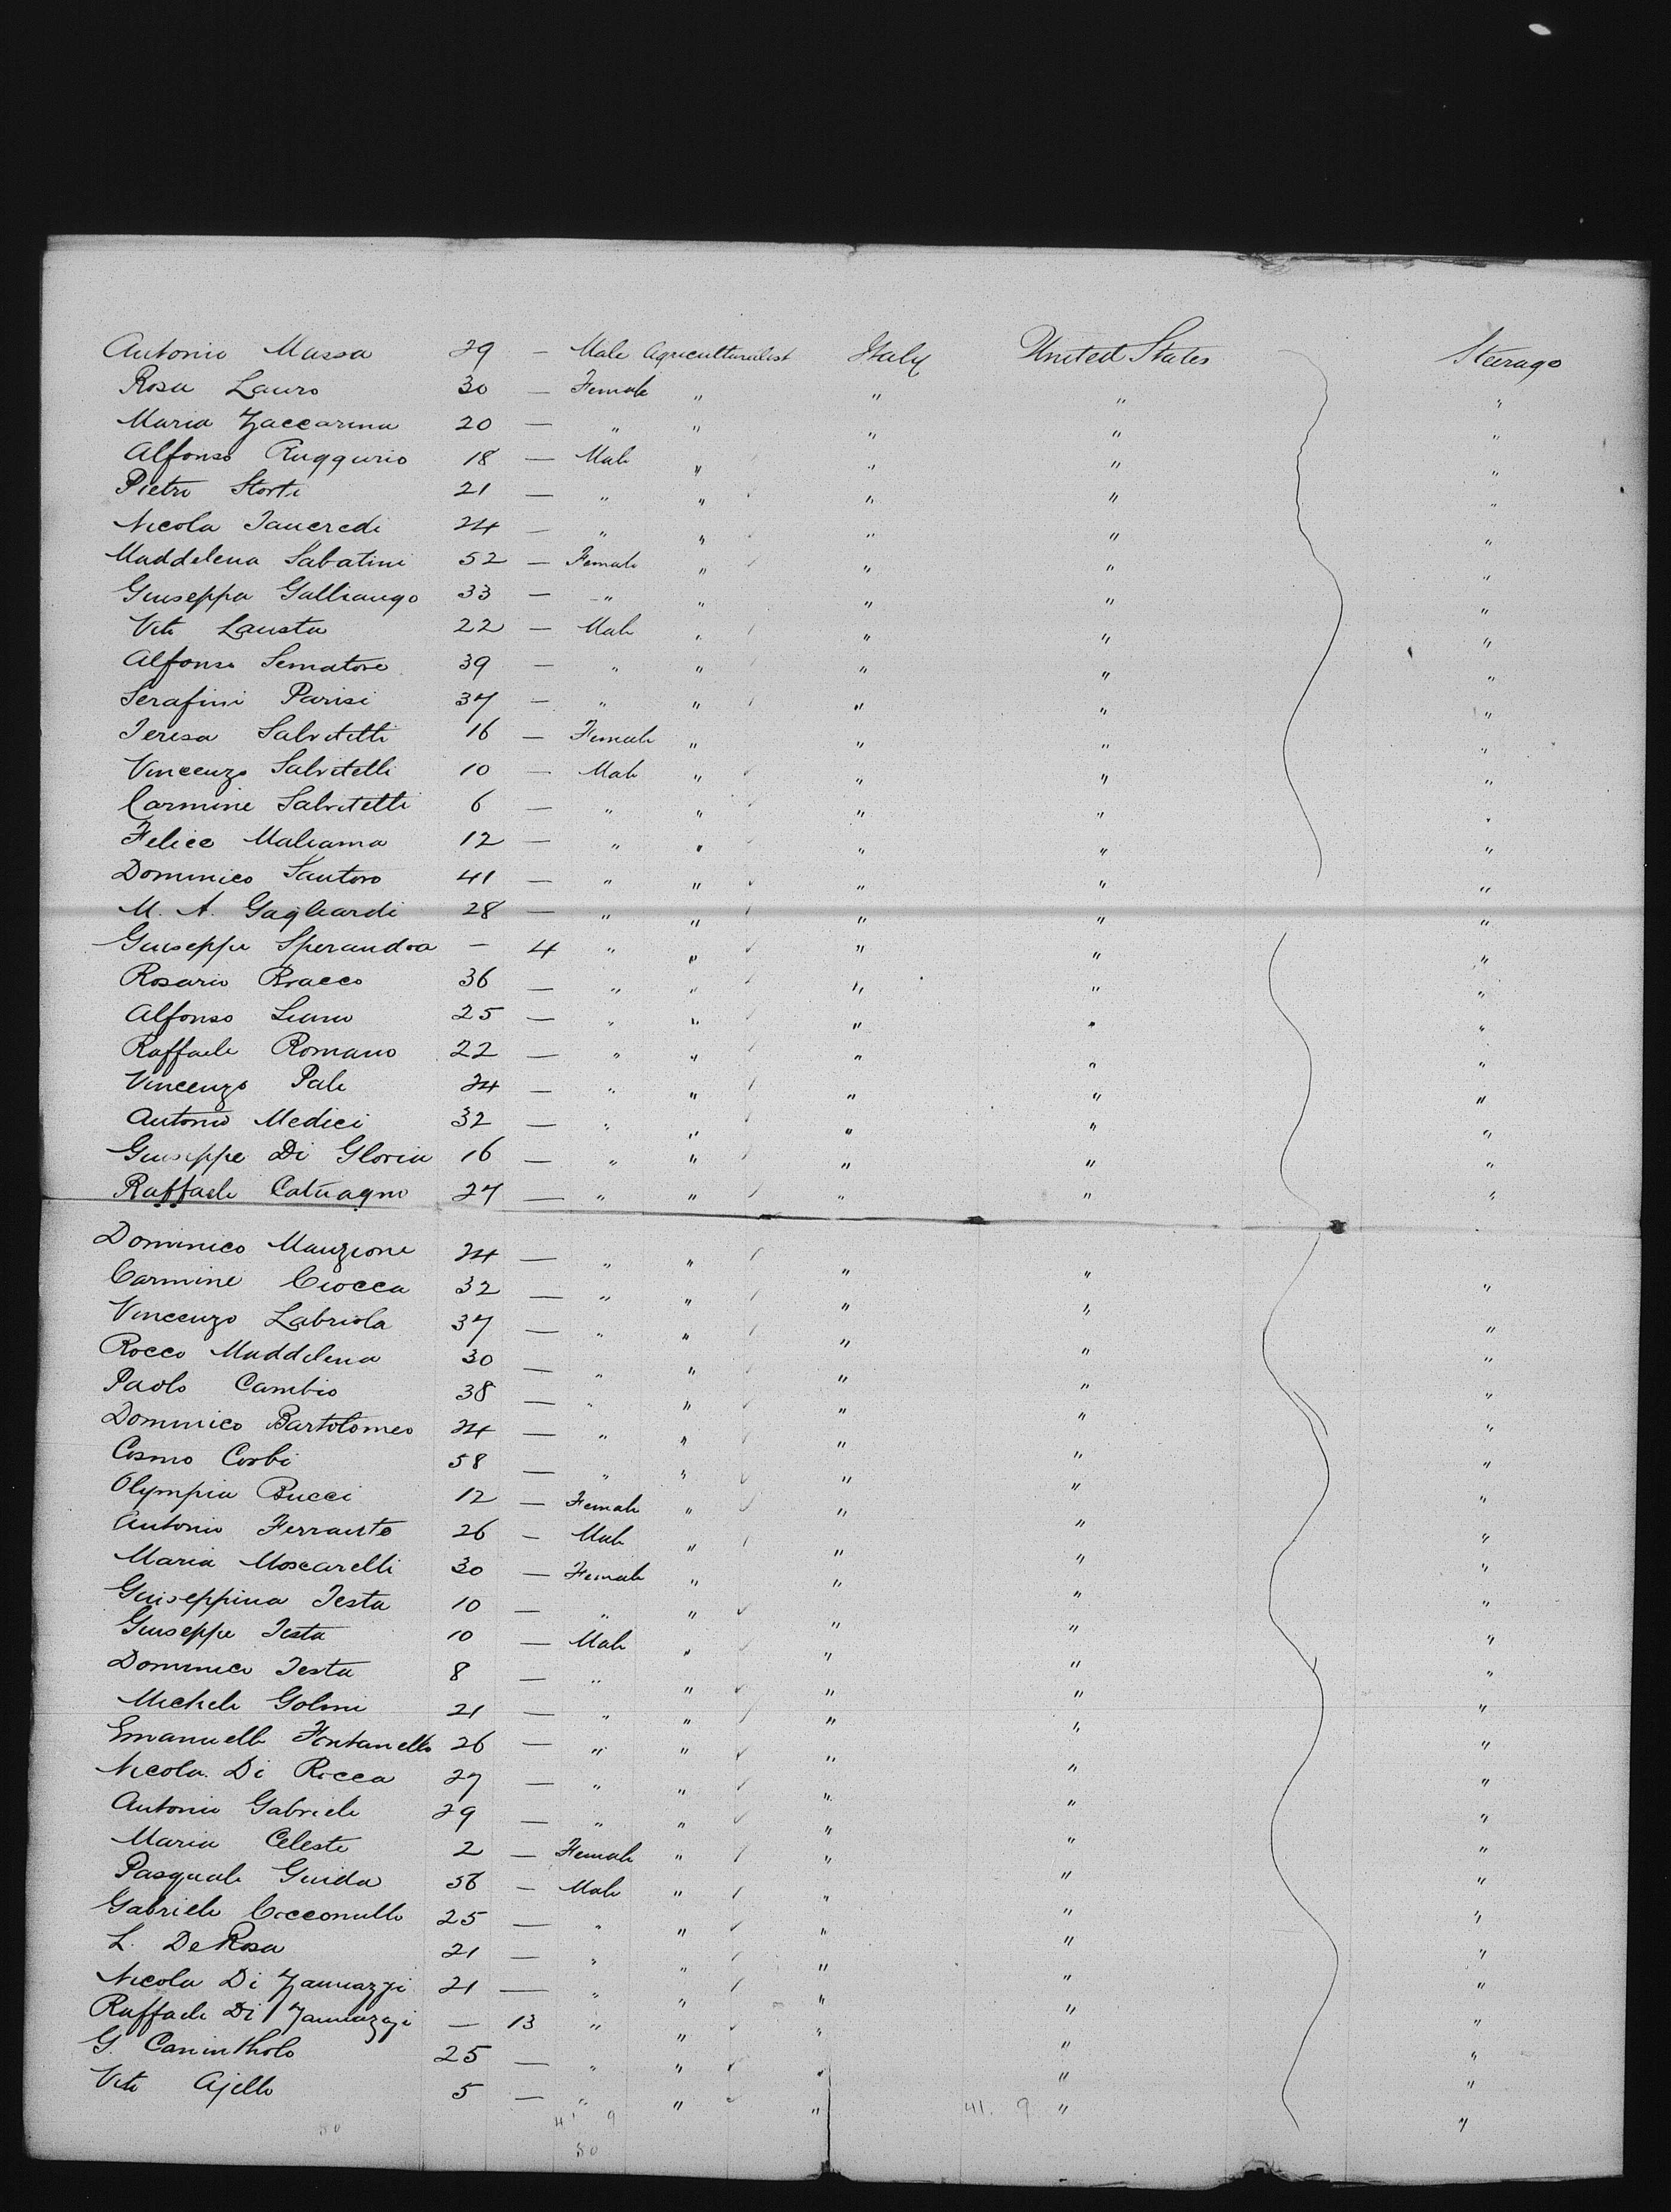 Antonio Massa 29 — Male Agriculturalist Italy United States Steerage
Rosa Lauro 30 — Female " " " "
Maria Zaccarina 20 — " " " " "
Alfonso Ruggurio 18 — Male " " " "
Pietro Storti 21 — " " " " "
Nicola Tancredi 24 — " " " " "
Maddelena Sabatini 52 — Female " " " "
Giuseppa Galliango 33 — " " " " "
Vito Lausta 22 — Male " " " "
Alfonso Sematore 39 — " " " " "
Serafini Parisi 37 — " " " " "
Teresa Salvitelli 16 — Female " " " "
Vincenzo Salvitelli 10 — Male " " " "
Carmine Salvitelli 6 — " " " " "
Felice Maliama 12 — " " " " "
Dominico Santoro 41 — " " " " "
M. A. Gagliardi 28 — " " " " "
Giuseppe Sperandoa — 4 " " " " "
Rosario Bracco 36 — " " " " "
Alfonso 25 — " " " " "
Raffaele Romano 22 — " " " " "
Vincenzo Pale 24 — " " " " "
Antonio Medici 32 — " " " " "
Giuseppe Di Gloria 16 — " " " " "
Raffaele Catuagno 27 — " " " " "
Dominico Manzione 24 — " " " " "
Carmine Ciocca 32 — " " " " "
Vincenzo Labriola 37 — " " " " "
Rocco Maddelena 30 — " " " " "
Paolo Cambio 38 — " " " " "
Dominico Bartolomeo 24 — " " " " "
Cosmo Corbi 58 — " " " " "
Olympia Bucci 12 — Female " " " "
Antonio Ferrauto 26 — Male " " " "
Maria Moscarelli 30 — Female " " " "
Guiseppina Testa 10 — " " " " "
Giuseppe Testa 10 — Male " " " "
Dominico Testa 8 — " " " " "
Michele Golmi 21 — " " " " "
Emanuelle Fontanello 26 — " " " " "
Nicola Di Ricca 27 — " " " " "
Antonio Gabriele 29 — " " " " "
Maria Celeste 2 — Female " " " "
Pasquale Guida 36 — Male " " " "
Gabriele Cicconullo 25 — " " " " "
L. De Rosa 21 — " " " " "
Nicola Di Zannazzi 21 — " " " " "
Raffaele Di Zannazzi — 13 " " " " "
G. Canintholo 25 — " " " " "
Vito Ajello 5 — " " " " "
50 41 9 41. 9
50